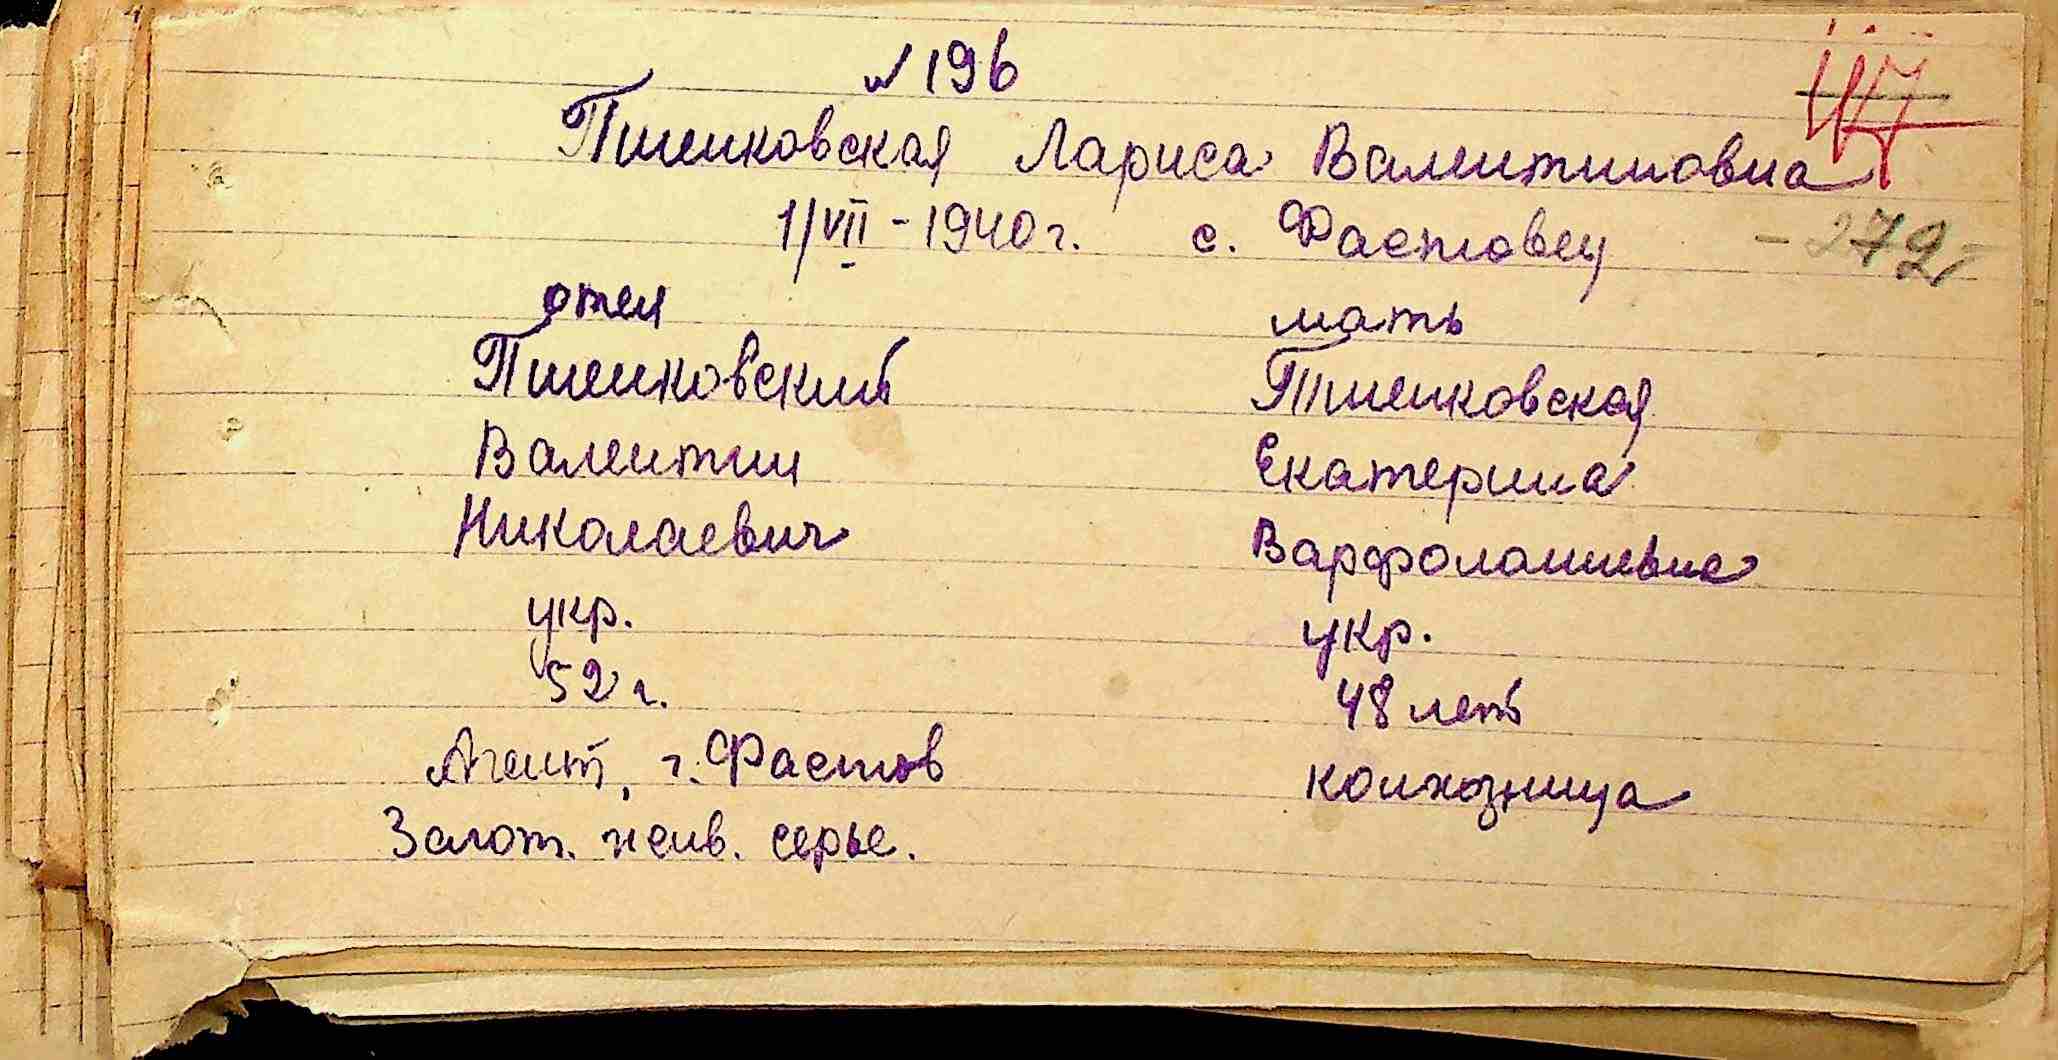 № 196
Пшенковская Лариса Валентиновна
1/VII - 1940 г. с. Фастовец
- 272
отец
Пшенковский
Валентин
Николаевич
укр.
52 г.
Агент, г. Фастов
Мать
Пшенковская
Екатерина
Варфоломиевна
укр.
48 летъ
колхозница